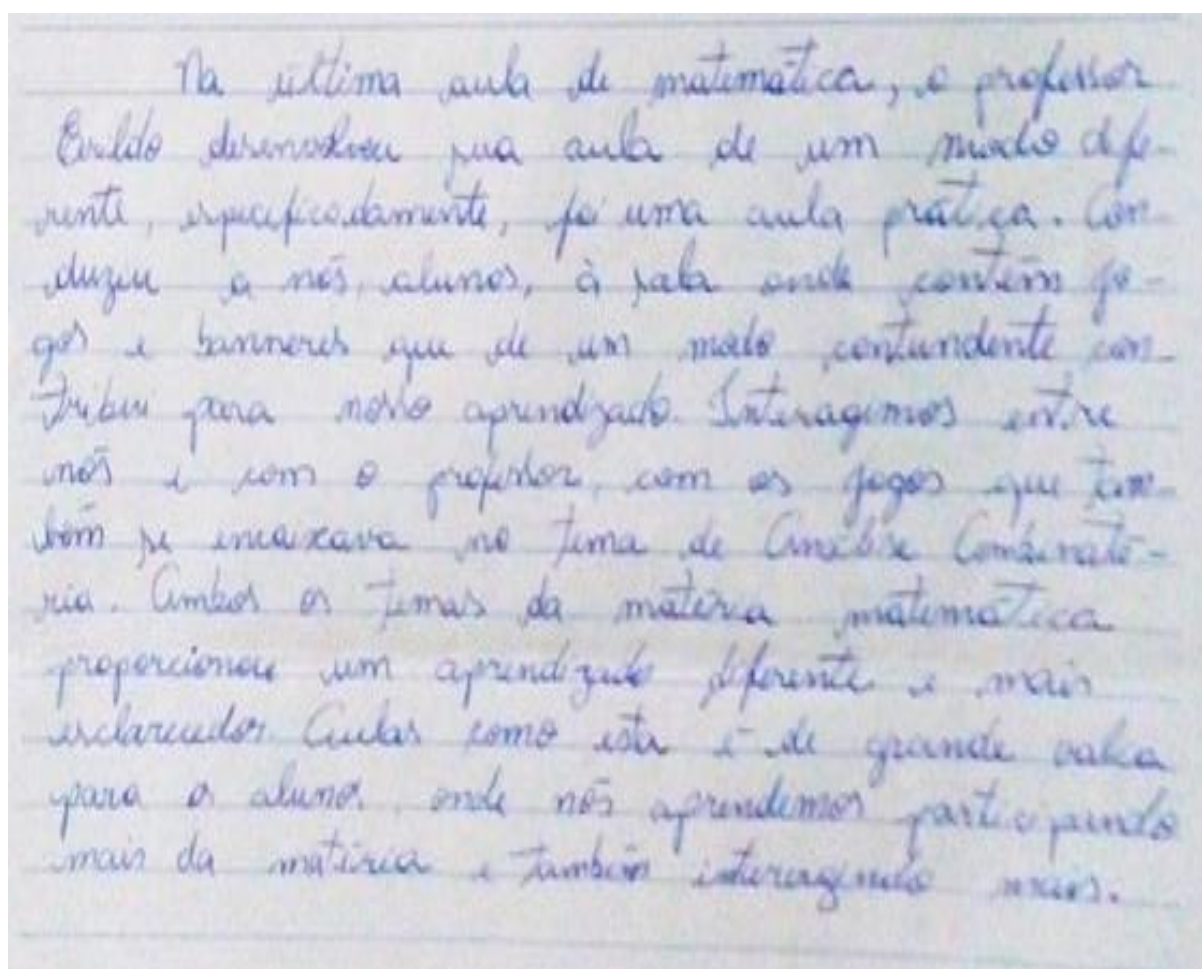 Na última aula de matemática, o professor
Evildo desenvolveu sua aula de um modo dife-
rente, especificadamente, foi uma aula prática. Con-
duzeu a nós, alunos, à sala onde contém jo-
gos e banneres que de um modo contundente con-
tribui para nosso aprendizado. Interagimos entre
nós e com o professor, com os jogos que tam-
bém se encaixava no tema de Análise Combinató-
ria. Ambos os temas da matéria matemática
proporcionou um aprendizado diferente e mais
esclarecedor. Aulas como esta é de grande valia
para os alunos, onde nós aprendemos participando
mais da matéria e também interagindo mais.